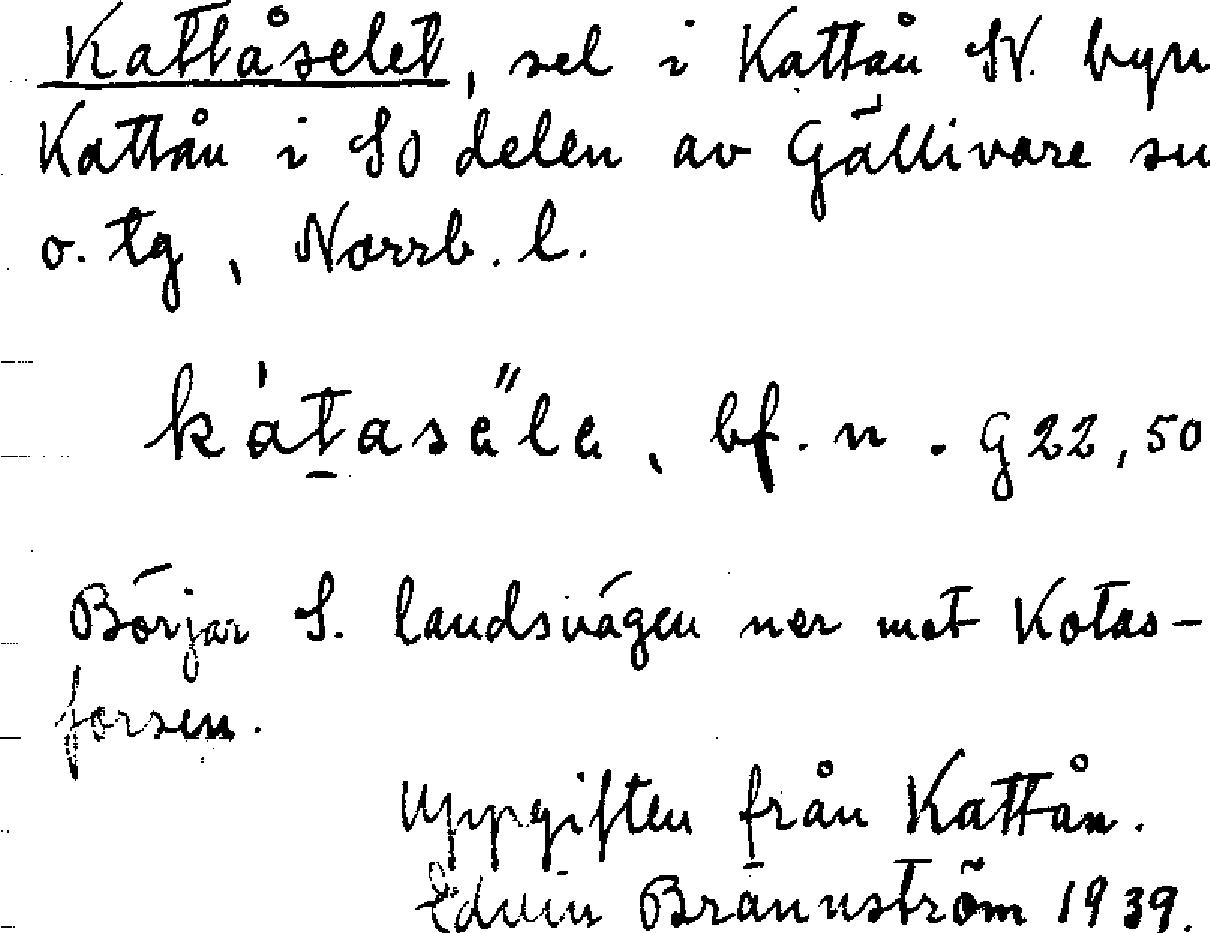 Kattåselet, sel i Kattån SV. byn
Kattån i SO delen av Gällivare sn
o. tg, Norrb. l.
bf. n. G 22, 50
Börjar S. landsvägen ner mot Kotas-
forsen.
Uppgiften från Kattån.
Edvin Brännström 1939.